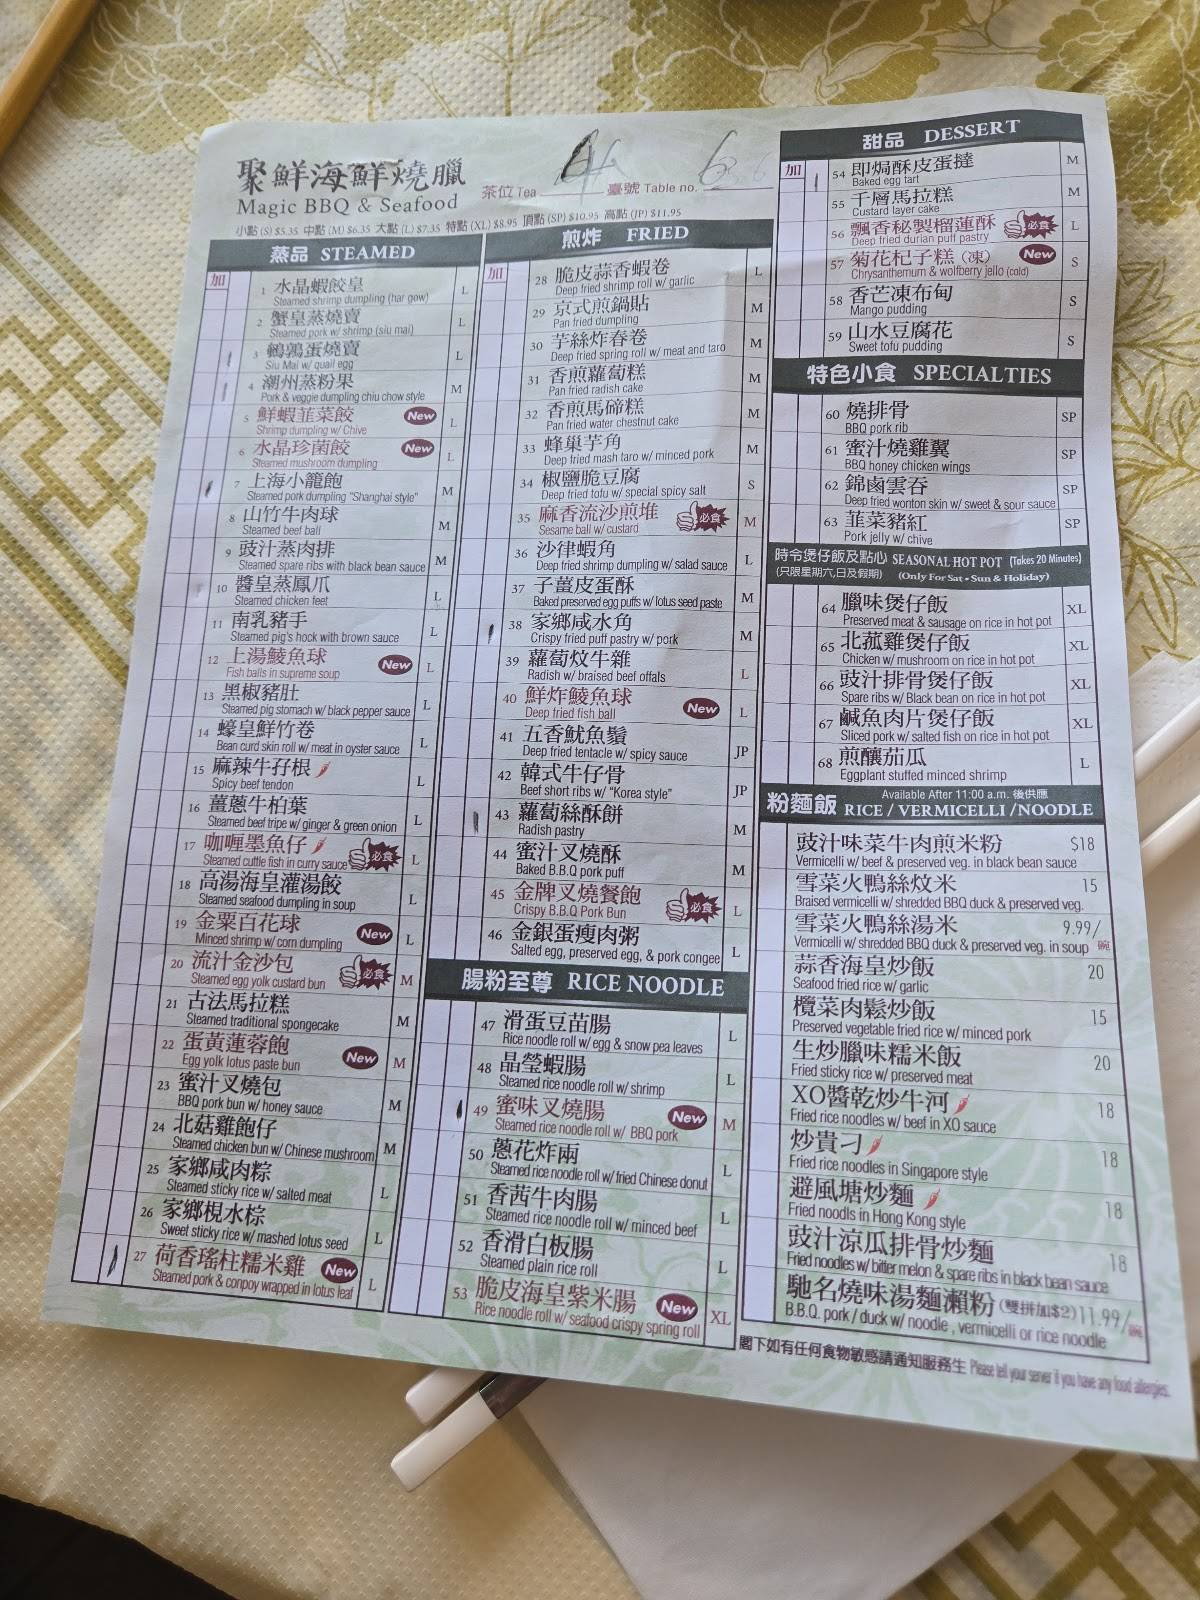 聚鮮海鮮燒臘
Magic BBQ & Seafood
茶位 Tea
臺號 Table no. 6
小點 (S) $5.35 中點 (M) $6.35 大點 (L) $7.35 特點 (XL) $8.95 頂點 (SP) $10.95 高點 (JP) $11.95
蒸品 STEAMED
加
1 水晶蝦餃皇 L
Steamed shrimp dumpling (har gow)
2 蟹皇蒸燒賣 L
Steamed pork w/ shrimp (siu mai)
3 鵪鶉蛋燒賣 L
Siu Mai w/ quail egg
4 潮州蒸粉果 M
Pork & veggie dumpling chiu chow style
5 鮮蝦韮菜餃 New L
Shrimp dumpling w/ Chive
6 水晶珍菌餃 New L
Steamed mushroom dumpling
7 上海小籠飽 M
Steamed pork dumpling "Shanghai style"
8 山竹牛肉球 M
Steamed beef ball
9 豉汁蒸肉排 M
Steamed spare ribs with black bean sauce
10 醬皇蒸鳳爪 L
Steamed chicken feet
11 南乳豬手 L
Steamed pig's hock with brown sauce
12 上湯鯪魚球 New L
Fish balls in supreme soup
13 黑椒豬肚 L
Steamed pig stomach w/ black pepper sauce
14 蠔皇鮮竹卷 L
Bean curd skin roll w/ meat in oyster sauce
15 麻辣牛孖根 L
Spicy beef tendon
16 薑蔥牛柏葉 L
Steamed beef tripe w/ ginger & green onion
17 咖喱墨魚仔 必食 L
Steamed cuttle fish in curry sauce
18 高湯海皇灌湯餃 L
Steamed seafood dumpling in soup
19 金粟百花球 New L
Minced shrimp w/ corn dumpling
20 流汁金沙包 必食 M
Steamed egg yolk custard bun
21 古法馬拉糕 M
Steamed traditional spongecake
22 蛋黃蓮蓉飽 New M
Egg yolk lotus paste bun
23 蜜汁叉燒包 M
BBQ pork bun w/ honey sauce
24 北菇雞飽仔 M
Steamed chicken bun w/ Chinese mushroom
25 家鄉咸肉粽 L
Steamed sticky rice w/ salted meat
26 家鄉梘水棕 L
Sweet sticky rice w/ mashed lotus seed
27 荷香瑤柱糯米雞 New L
Steamed pork & conpoy wrapped in lotus leaf
煎炸 FRIED
加
28 脆皮蒜香蝦卷 L
Deep fried shrimp roll w/ garlic
29 京式煎鍋貼 M
Pan fried dumpling
30 芋絲炸春卷 M
Deep fried spring roll w/ meat and taro
31 香煎蘿蔔糕 M
Pan fried radish cake
32 香煎馬碲糕 M
Pan fried water chestnut cake
33 蜂巢芋角 M
Deep fried mash taro w/ minced pork
34 椒鹽脆豆腐 S
Deep fried tofu w/ special spicy salt
35 麻香流沙煎堆 必食 M
Sesame ball w/ custard
36 沙律蝦角 L
Deep fried shrimp dumpling w/ salad sauce
37 子薑皮蛋酥 M
Baked preserved egg puffs w/ lotus seed paste
38 家鄉咸水角 M
Crispy fried puff pastry w/ pork
39 蘿蔔炆牛雜 L
Radish w/ braised beef offals
40 鮮炸鯪魚球 New L
Deep fried fish ball
41 五香魷魚鬚 JP
Deep fried tentacle w/ spicy sauce
42 韓式牛仔骨 JP
Beef short ribs w/ "Korea style"
43 蘿蔔絲酥餅 M
Radish pastry
44 蜜汁叉燒酥 M
Baked B.B.Q pork puff
45 金牌叉燒餐飽 必食 L
Crispy B.B.Q Pork Bun
46 金銀蛋瘦肉粥 L
Salted egg, preserved egg, & pork congee
腸粉至尊 RICE NOODLE
47 滑蛋豆苗腸 L
Rice noodle roll w/ egg & snow pea leaves
48 晶瑩蝦腸 L
Steamed rice noodle roll w/ shrimp
49 蜜味叉燒腸 New M
Steamed rice noodle roll w/ BBQ pork
50 蔥花炸兩 L
Steamed rice noodle roll w/ fried Chinese donut
51 香茜牛肉腸 L
Steamed rice noodle roll w/ minced beef
52 香滑白板腸 L
Steamed plain rice roll
53 脆皮海皇紫米腸 New XL
Rice noodle roll w/ seafood crispy spring roll
甜品 DESSERT
加
54 即焗酥皮蛋撻 M
Baked egg tart
55 千層馬拉糕 M
Custard layer cake
56 飄香秘製榴蓮酥 必食 L
Deep fried durian puff pastry
57 菊花杞子糕 (凍) New S
Chrysanthemum & wolfberry jello (cold)
58 香芒凍布甸 S
Mango pudding
59 山水豆腐花 S
Sweet tofu pudding
特色小食 SPECIALTIES
60 燒排骨 SP
BBQ pork rib
61 蜜汁燒雞翼 SP
BBQ honey chicken wings
62 錦鹵雲吞 SP
Deep fried wonton skin w/ sweet & sour sauce
63 韮菜豬紅 SP
Pork jelly w/ chive
時令煲仔飯及點心 SEASONAL HOT POT (Takes 20 Minutes)
(只限星期六,日及假期) (Only For Sat • Sun & Holiday)
64 臘味煲仔飯 XL
Preserved meat & sausage on rice in hot pot
65 北菰雞煲仔飯 XL
Chicken w/ mushroom on rice in hot pot
66 豉汁排骨煲仔飯 XL
Spare ribs w/ Black bean on rice in hot pot
67 鹹魚肉片煲仔飯 XL
Sliced pork w/ salted fish on rice in hot pot
68 煎釀茄瓜 L
Eggplant stuffed minced shrimp
粉麵飯 Available After 11:00 a.m. 後供應
RICE / VERMICELLI /NOODLE
豉汁味菜牛肉煎米粉 $18
Vermicelli w/ beef & preserved veg. in black bean sauce
雪菜火鴨絲炆米 15
Braised vermicelli w/ shredded BBQ duck & preserved veg.
雪菜火鴨絲湯米 9.99/碗
Vermicelli w/ shredded BBQ duck & preserved veg. in soup
蒜香海皇炒飯 20
Seafood fried rice w/ garlic
欖菜肉鬆炒飯 15
Preserved vegetable fried rice w/ minced pork
生炒臘味糯米飯 20
Fried sticky rice w/ preserved meat
XO醬乾炒牛河 18
Fried rice noodles w/ beef in XO sauce
炒貴刁 18
Fried rice noodles in Singapore style
避風塘炒麵 18
Fried noodls in Hong Kong style
豉汁涼瓜排骨炒麵 18
Fried noodles w/ bitter melon & spare ribs in black bean sauce
馳名燒味湯麵瀨粉 (雙拼加$2) 11.99/碗
B.B.Q. pork / duck w/ noodle , vermicelli or rice noodle
閣下如有任何食物敏感請通知服務生 Please tell your server if you have any food allergies.